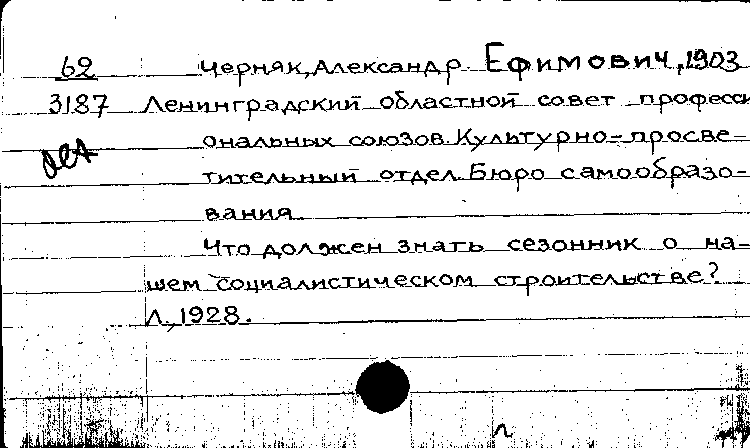 62 Черняк, Александр Ефимович, 1903
3187 Ленинградский областной совет професси
ональных союзов. Культурно-просве-
тительный отдел. Бюро самообразо-
вания
Что должен знать сезонник о на-
шем социалистическом строительстве?
Л., 1928.